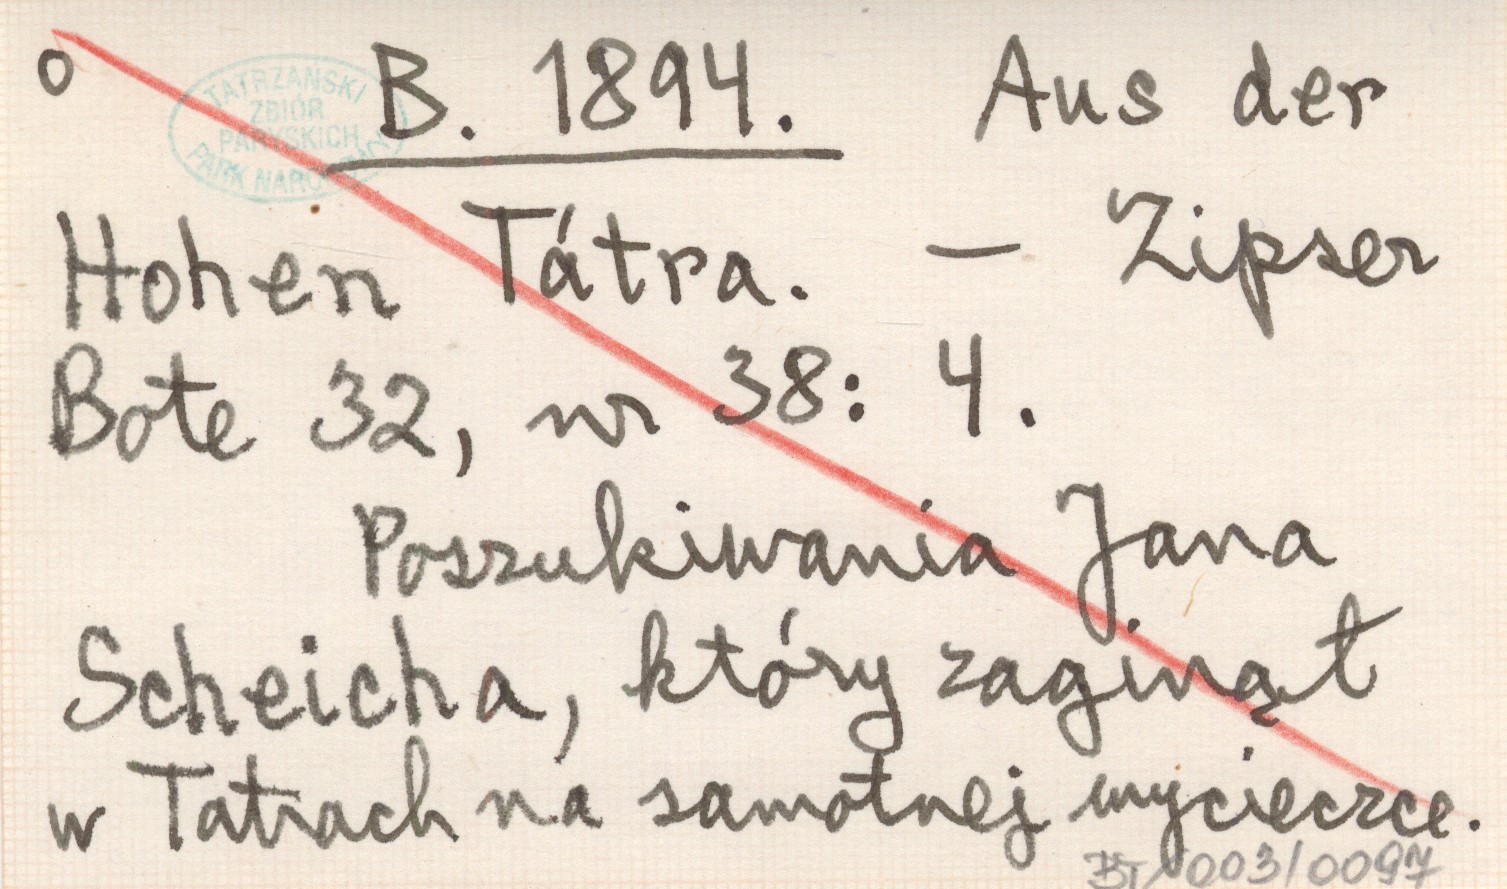 o B. 1894. Aus der
TATRZAŃSKI
ZBIÓR
PARYSKICH
PARK NARODOWY
Hohen Tátra. — Zipser
Bote 32, nr 38: 4.
Poszukiwania Jana
Scheicha, który zaginął
w Tatrach na samotnej wycieczce.
BT/003/0097